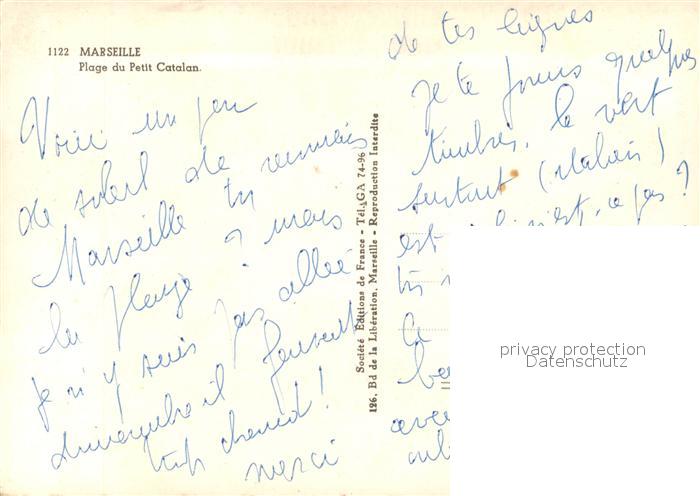 1122 MARSEILLE
Plage du Petit Catalan.
Voici un peu
de soleil de
Marseille tu reconnais
la plage ? mais
je n'y suis pas allée
dimanche il faisait
trop chaud !
merci
Société Editions de France - Tél. AGA 74-96
126, Bd de la Libération, Marseille - Reproduction Interdite
de tes lignes
Je te joins quelques
timbres, le vert
surtout (italien)
est n'est-ce pas ?
avec
privacy protection
Datenschutz